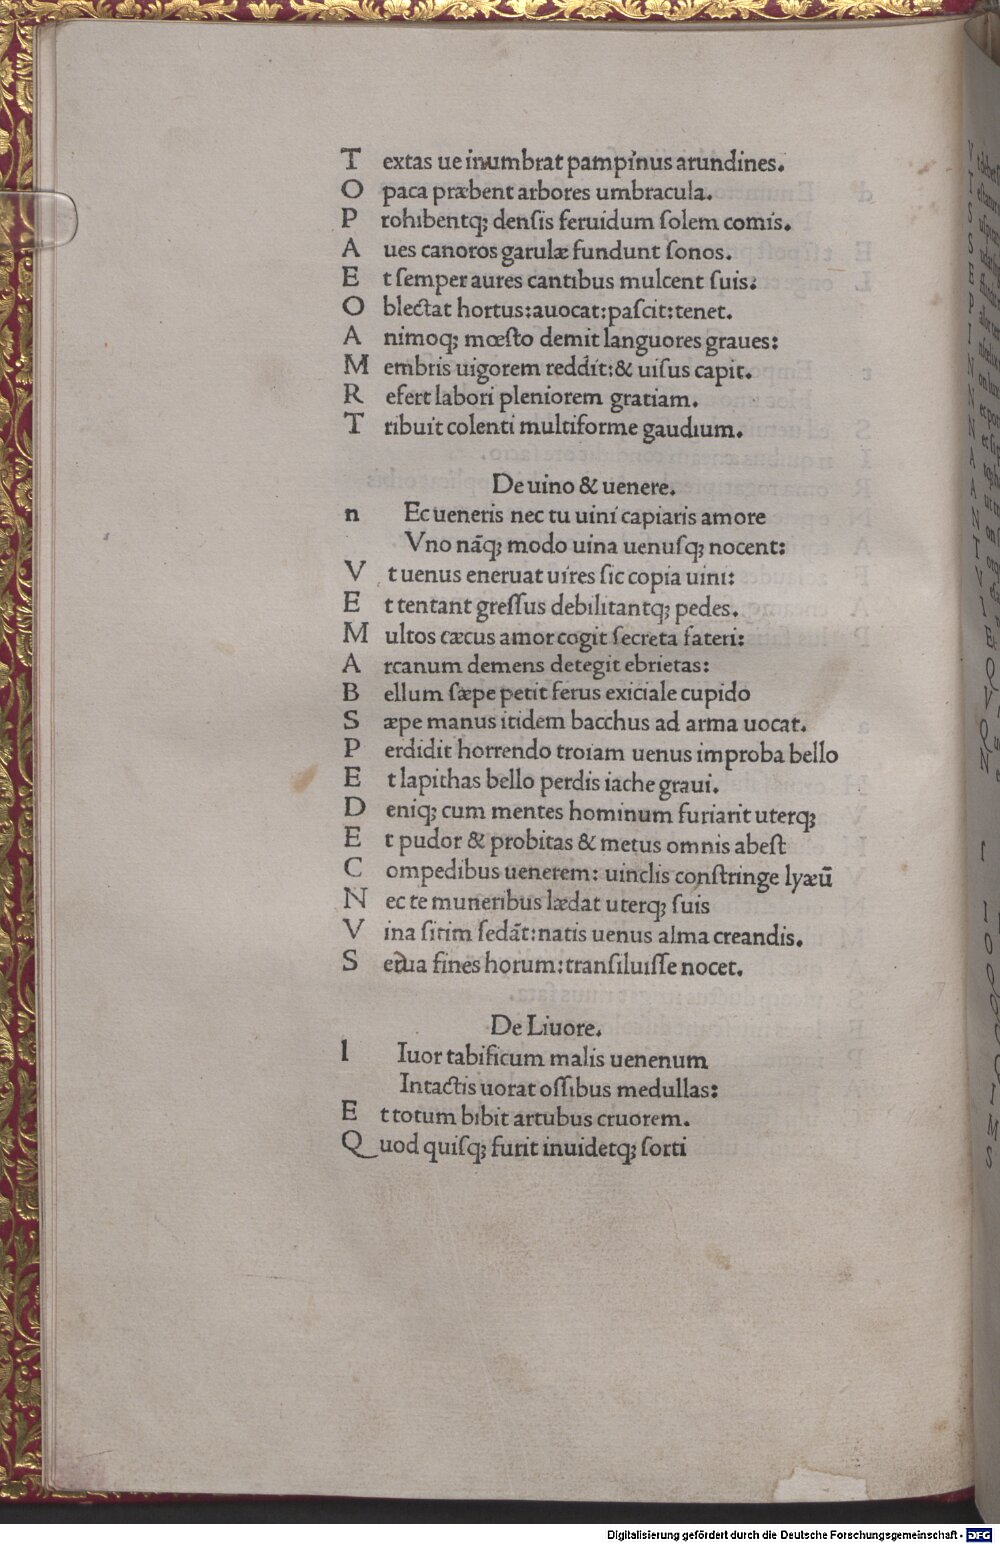 T extas ue inumbrat pampinus arundines.
O paca præbent arbores umbracula.
P rohibentq; denſis feruidum ſolem comis.
A ues canoros garulæ fundunt ſonos.
E t ſemper aures cantibus mulcent ſuis:
O blectat hortus: auocat: paſcit: tenet.
A nimoq; mœſto demit languores graues:
M embris uigorem reddit: & uiſus capit.
R efert labori pleniorem gratiam.
T ribuit colenti multiforme gaudium.
De uino & uenere.
n Ec ueneris nec tu uini capiaris amore
Vno nāq; modo uina uenuſq; nocent:
V t uenus eneruat uires ſic copia uini:
E t tentant greſſus debilitantq; pedes.
M ultos cæcus amor cogit ſecreta fateri:
A rcanum demens detegit ebrietas:
B ellum ſæpe petit ferus exiciale cupido
S æpe manus itidem bacchus ad arma uocat.
P erdidit horrendo troiam uenus improba bello
E t lapithas bello perdis iache graui.
D eniq; cum mentes hominum furiarit uterq;
E t pudor & probitas & metus omnis abeſt
C ompedibus uenerem: uinclis conſtringe lyæū
N ec te muneribus lædat uterq; ſuis
V ina ſitim ſedāt: natis uenus alma creandis.
S ed ua fines horum: tranſiluiſſe nocet.
De Liuore.
l Iuor tabificum malis uenenum
Intactis uorat oſſibus medullas:
E t totum bibit artubus cruorem.
Q uod quiſq; furit inuidetq; ſorti
Digitalisierung gefördert durch die Deutsche Forschungsgemeinschaft - DFG